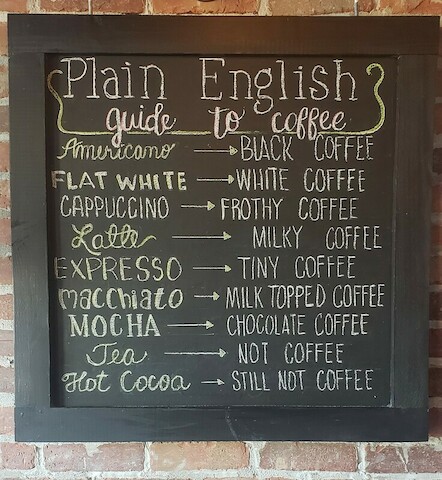 Plain English
guide to coffee
Americano → BLACK COFFEE
FLAT WHITE → WHITE COFFEE
CAPPUCCINO → FROTHY COFFEE
Latte → MILKY COFFEE
EXPRESSO → TINY COFFEE
macchiato → MILK TOPPED COFFEE
MOCHA → CHOCOLATE COFFEE
Tea → NOT COFFEE
Hot Cocoa → STILL NOT COFFEE